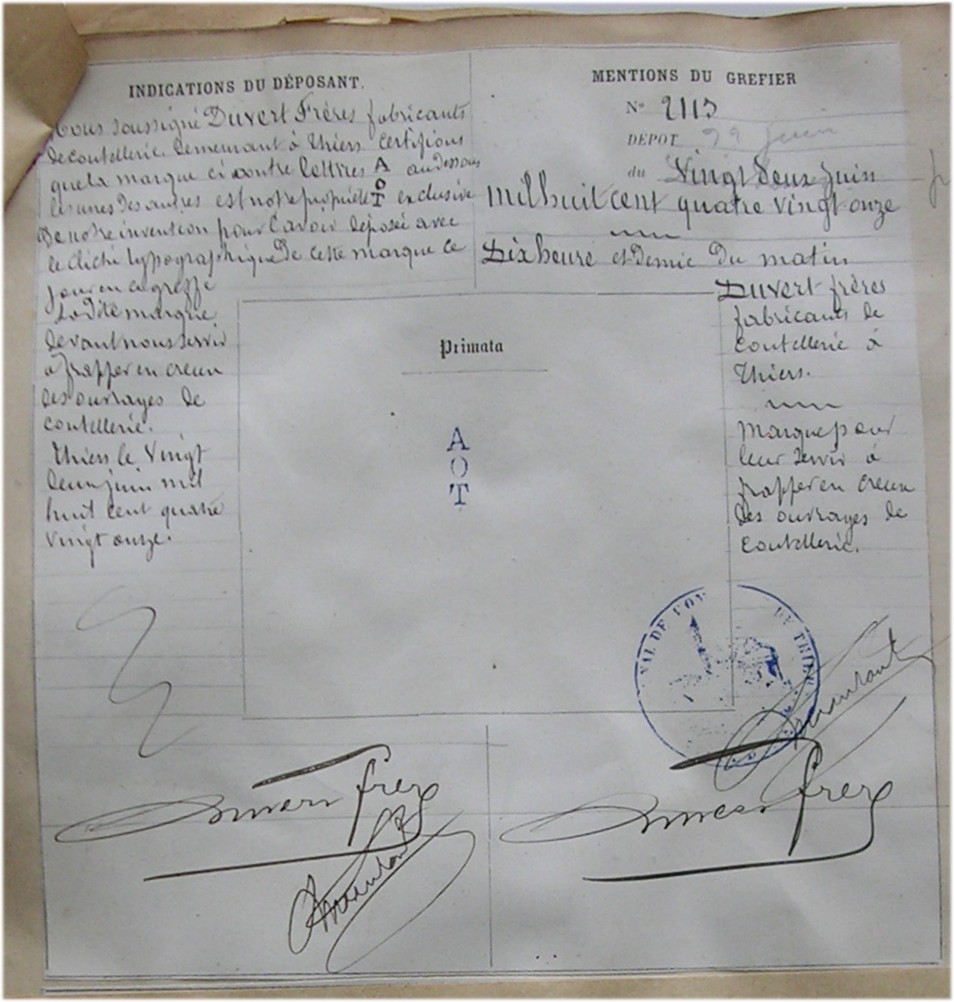 INDICATIONS DU DÉPOSANT.
Nous soussigné Duvert Frères fabricants
de coutellerie demeurant à Thiers certifions
que la marque ci contre lettres A au dessous
O
les unes des autres est notre propriété T exclusive
de notre invention pour l'avoir déposée avec
le cliché typographique de cette marque ce
jour en ce greffe
La dite marque
devant nous servir
à frapper en creux
des ouvrages de
coutellerie.
Thiers le Vingt
deux juin mil
huit cent quatre
vingt onze.
MENTIONS DU GREFIER
N° 2113
DEPOT juin
du Vingt deux juin
Mil huit cent quatre vingt onze
Dix heure et demie du matin
Duvert frères
fabricants de
coutellerie à
Thiers.
Marque pour
leur servir à
frapper en creux
des ouvrages de
coutellerie.
Primata
A
O
T
Duvert frères
Duvert frères